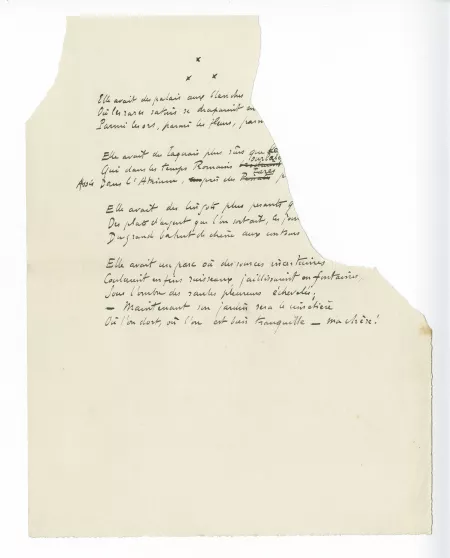 Elle avait des palais aux blanches
Où les rares satins se drapaient en
Parmi les ors, parmi les fleurs, parm
Elle avait des laquais plus sûrs que
Qui dans les temps Romains
Assis Dans l'Atrium, près des
Elle avait des lingots plus pesants q
Des plats d'argent que l'on sortait, les jou
Du grand bahut de chêne aux
Elle avait un parc où des sources incertaines
Coulaient en fins ruisseaux jaillissant en fontaines
Sous l'ombre des saules pleureurs échevelés,
— Maintenant son jardin sera le cimetière
Où l'on dort, où l'on est bien tranquille — ma chère!